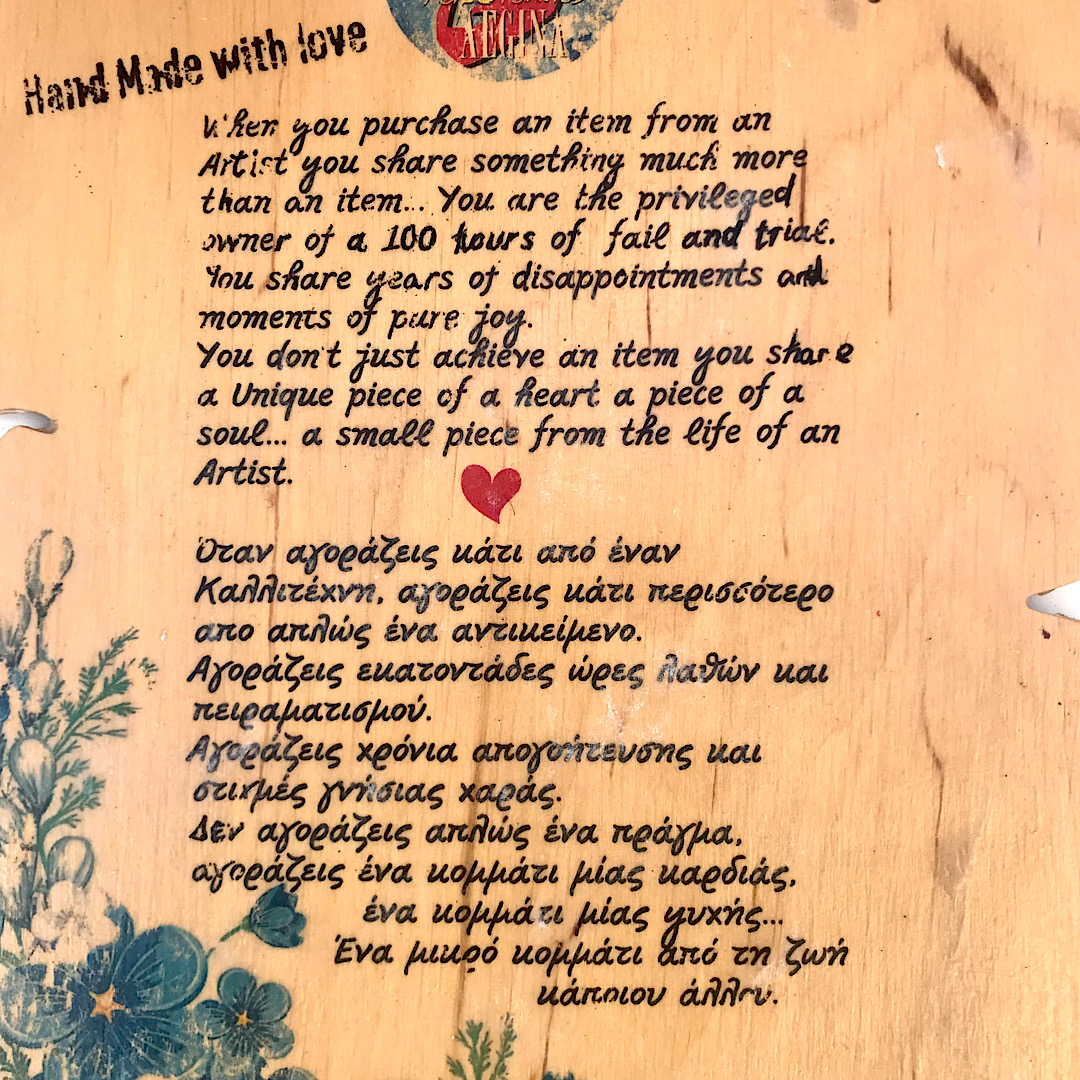 AEGINA
Hand Made with love
When you purchase an item from an
Artist you share something much more
than an item... You are the privileged
owner of a 100 hours of fail and trial.
You share years of disappointments and
moments of pure joy.
You don't just achieve an item you share
a Unique piece of a heart a piece of a
soul... a small piece from the life of an
Artist.
Όταν αγοράζεις κάτι από έναν
Καλλιτέχνη, αγοράζεις κάτι περισσότερο
απο απλώς ένα αντικείμενο.
Αγοράζεις εκατοντάδες ώρες λαθών και
πειραματισμού.
Αγοράζεις χρόνια απογοήτευσης και
στιγμές γνήσιας χαράς.
Δεν αγοράζεις απλώς ένα πράγμα,
αγοράζεις ένα κομμάτι μίας καρδιάς,
ένα κομμάτι μίας ψυχής...
Ένα μικρό κομμάτι από τη ζωή
κάποιου άλλου.